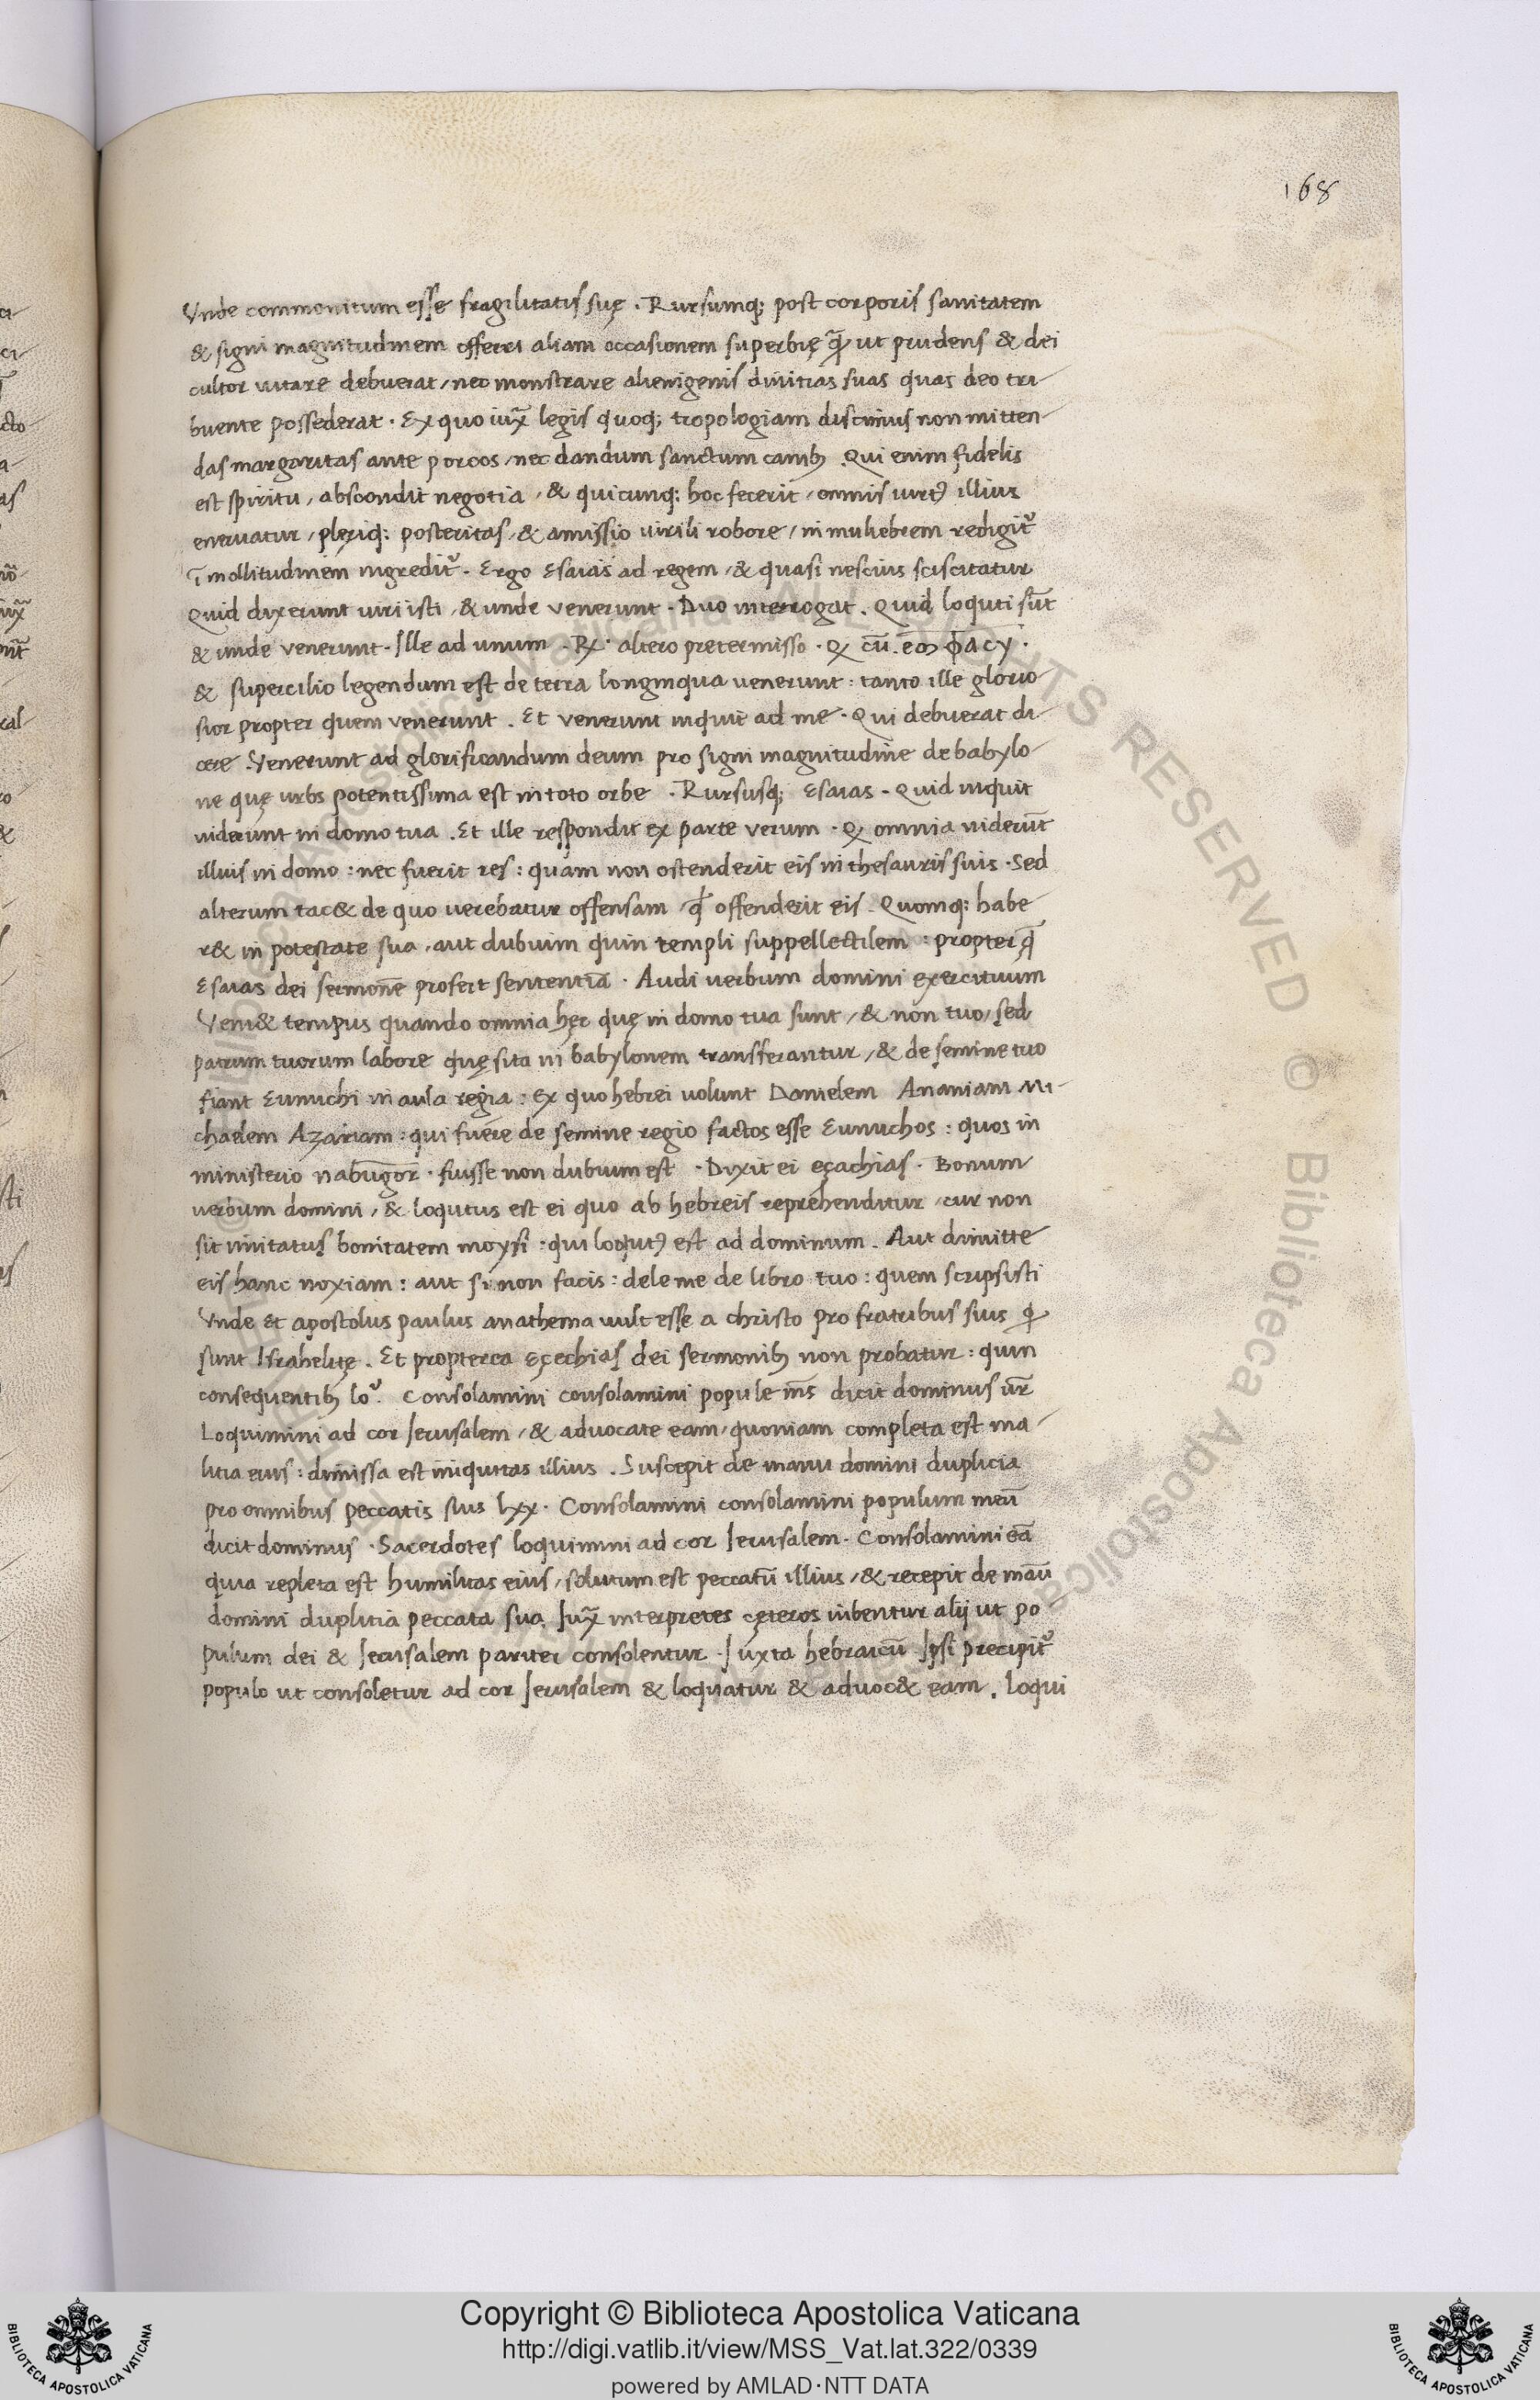 168
Vnde commonitum esse fragilitatis suę . Rursumq; post corporis sanitatem
& signi magnitudinem offerri aliam occasionem superbię q̄ ut prudens & dei
cultor uitare debuerat / nec monstrare alienigenis diuitias suas quas deo tri-
buente possederat . Ex quo iux̄ legis quoq; tropologiam discimus non mitten-
das margaritas ante porcos / nec dandum sanctum canibȝ . Qui enim fidelis
est spiritu / abscondit negotia / & quicunq; hoc fecerit / omnis uirtꝰ illius
eneruatur / pleriq; posteritas / & amisso virili robore / in muliebrem redigit᷑
ī mollitudinem ingredit᷑ . Ergo Esaias ad regem / & quasi nescius sciscitatur
Quid dixerunt uiri isti / & unde venerunt . Duo interrogat . Quid loquti sūt
& unde venerunt . Ille ad unum . R̷ . altero pretermisso . Q̷ cū
& supercilio legendum est de terra longinqua venerunt : tanto ille glorio-
sior propter quem venerunt . Et venerunt inquit ad me . Qui debuerat di-
cere . Venerunt ad glorificandum deum pro signi magnitudine de babylo-
ne quę urbs potentissima est in toto orbe . Rursusq; Esaias . Quid inquit
uiderunt in domo tua . Et ille respondit ex parte verum . Q̷ omnia uiderūt
illius in domo : nec fuerit res : quam non ostenderit eis in thesauris suis . Sed
alterum tac& de quo uerebatur offensam / qđ offenderit eis . Quomq; habe
r& in potestate sua . aut dubium quin templi suppellectilem : propter q̄
Esaias dei sermonē profert sententiā . Audi uerbum domini exercituum
Veni& tempus quando omnia hęc quę in domo tua sunt / & non tuo / sed
patrum tuorum labore quęsita in babylonem transferantur / & de semine tuo
fiant Eunuchi in aula regia : Ex quo hebrei uolunt Danielem Ananiam Mi-
chaelem Azariam : qui fuere de semine regio factos esse Eunuchos : quos in
ministerio nabugor̄ . fuisse non dubium est . Dixit ei eçachias . Bonum
uerbum domini / & loqutus est ei quo ab hebreis reprehenditur / cur non
sit imitatus bonitatem moysi : qui loqutꝰ est ad dominum . Aut dimitte
eis hanc noxiam : aut si non facis : dele me de libro tuo : quem scripsisti
Vnde et apostolus paulus anathema uult esse a christo pro fratribus suis q̇
sunt Israhelitę . Et propterea eçechias dei sermonibȝ non probatur : quin
consequentibȝ lo᷑ . Consolamini consolamini popule m̄s dicit dominus ūr
Loquimini ad cor Ierusalem / & aduocate eam / quoniam completa est ma-
litia eius : dimissa est iniquitas illius . Suscepit de manu domini duplicia
pro omnibus peccatis suis lxx . Consolamini consolamini populum meū
dicit dominus . Sacerdotes loquimini ad cor Ierusalem . Consolamini eā
quia repleta est humilitas eius / solutum est peccatū illius / & recepit de manū
domini duplicia peccata sua . Iux̄ interpretes cęteros iubentur alij ut po
pulum dei & Ierusalem pariter consolentur . Iuxta hebraicū Ipsi precipit᷑
populo ut consoletur ad cor Ierusalem & loquatur & aduoc& eam . loqui
Copyright © Biblioteca Apostolica Vaticana
http://digi.vatlib.it/view/MSS_Vat.lat.322/0339
powered by AMLAD·NTT DATA
BIBLIOTECA APOSTOLICA VATICANA
BIBLIOTECA APOSTOLICA VATICANA